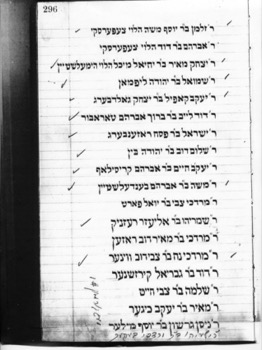 296
ר' זלמן בר יוסף משה הלוי צעפערסקי
ר' אברהם בר דוד הלוי צעפערסקי
ר' יצחק מאיר בר יחיאל מיכל הלוי הימעלשטיין
ר' שמואל בר יהודה ליפמאן
ר' יעקב קאפיל בר יצחק גאלדבערג
ר' דוד לייב בר ברוך אברהם טאראבור
ר' ישראל בר פסח ראזענבערג
ר' שלום דוב בר יהודה בין
ר' יעקב חיים בר אברהם קריסילאוו
ר' משה בר אברהם בענדעלשטיין
ר' מרדכי צבי בר יואל פארט
ר' שמריהו בר אליעזר רעזניק
ר' מרדכי בר מאיר דוב ראזען
ר' מרדכי נח בר צבי דוב ווינער
ר' דוד בר גבריאל קירזשנער
ר' שלמה בר צבי הייט
ר' מאיר בר יעקב כיגער
ר' ניסן גרשון בר יוסף מילער